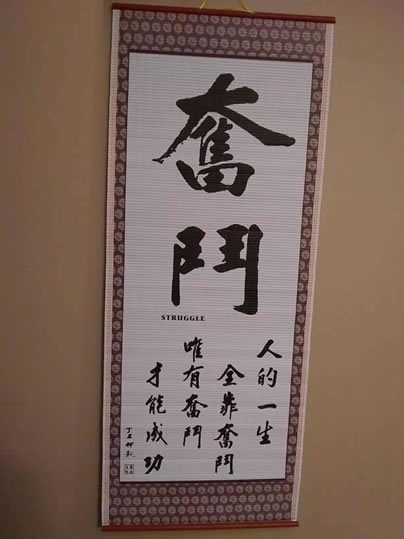 奮鬥
STRUGGLE
人的一生
全靠奮鬥
唯有奮鬥
才能成功